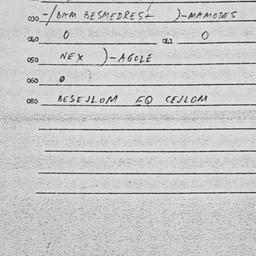 030 -/BAM BESMEDRES+ )-MAMODES
040 0 041 0
050 NEX )-AGOLE
060 0
080 BESEJLOM EQ CEJLOM